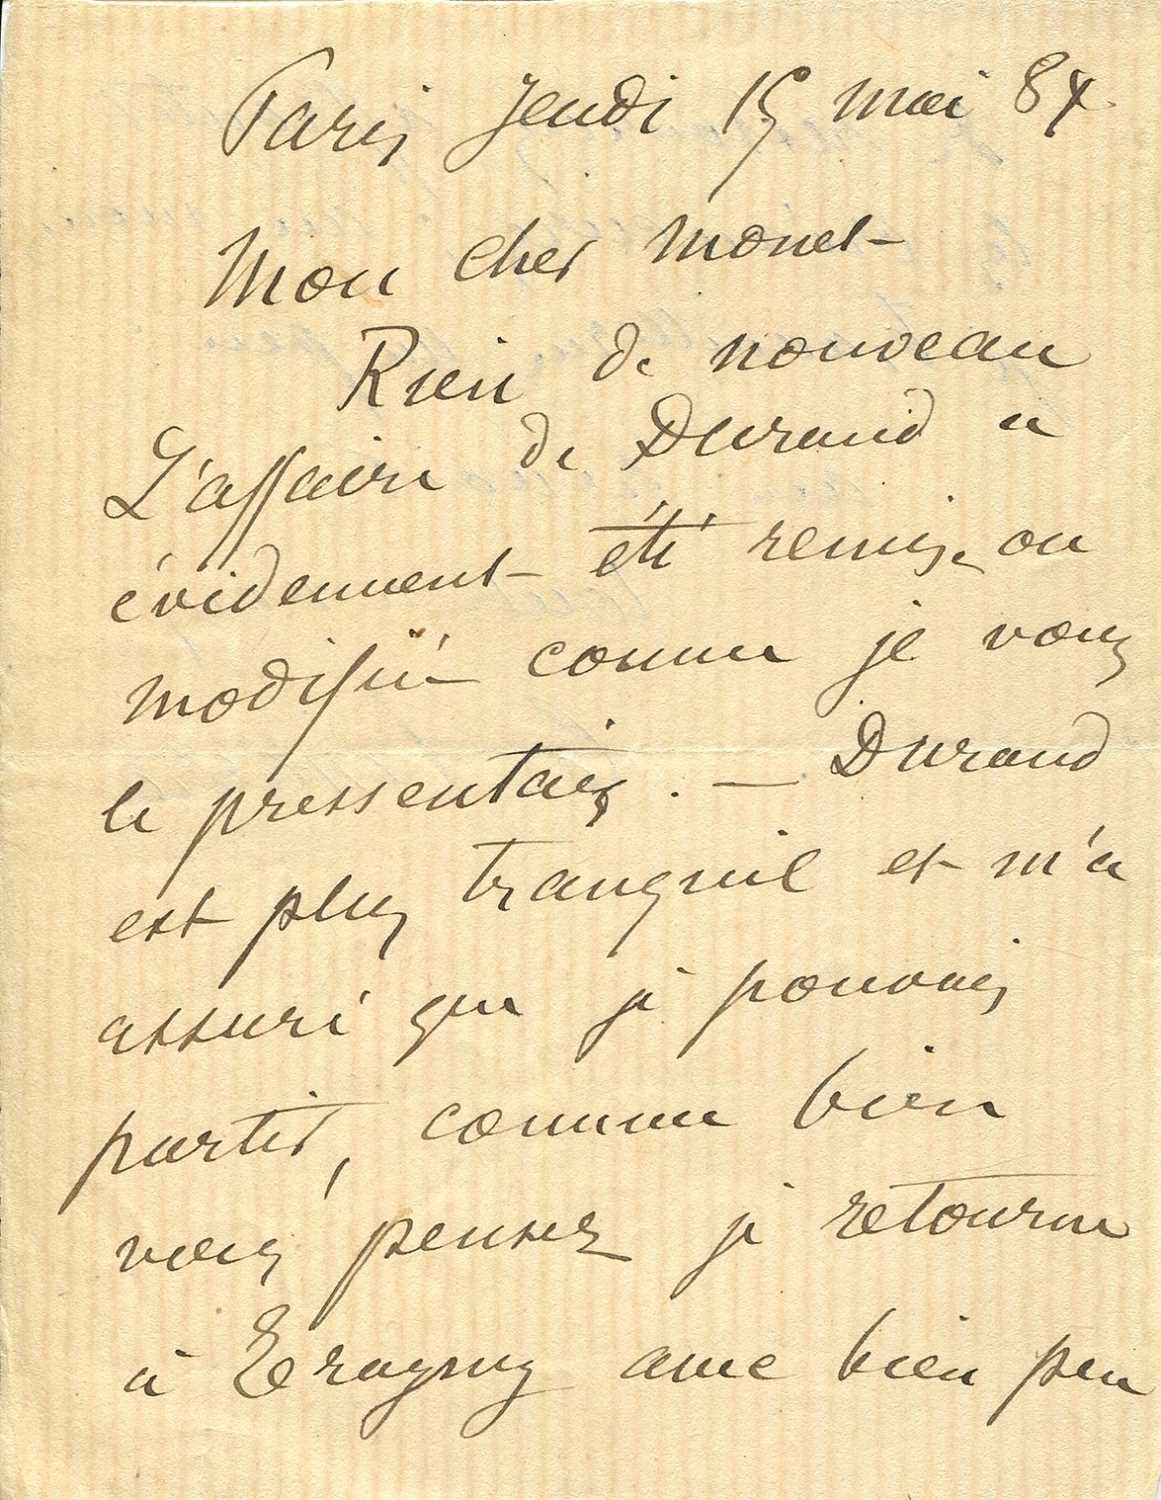 Paris Jeudi 15 mai 84
Mon cher Monet
Rien de nouveau
L'affaire de Durand a
évidemment été remise ou
modifiée comme je vous
le pressentais. — Durand
est plus tranquil et m'a
assuré que je pouvais
partir, comme bien
vous pensez je retourne
à Eragny avec bien peu